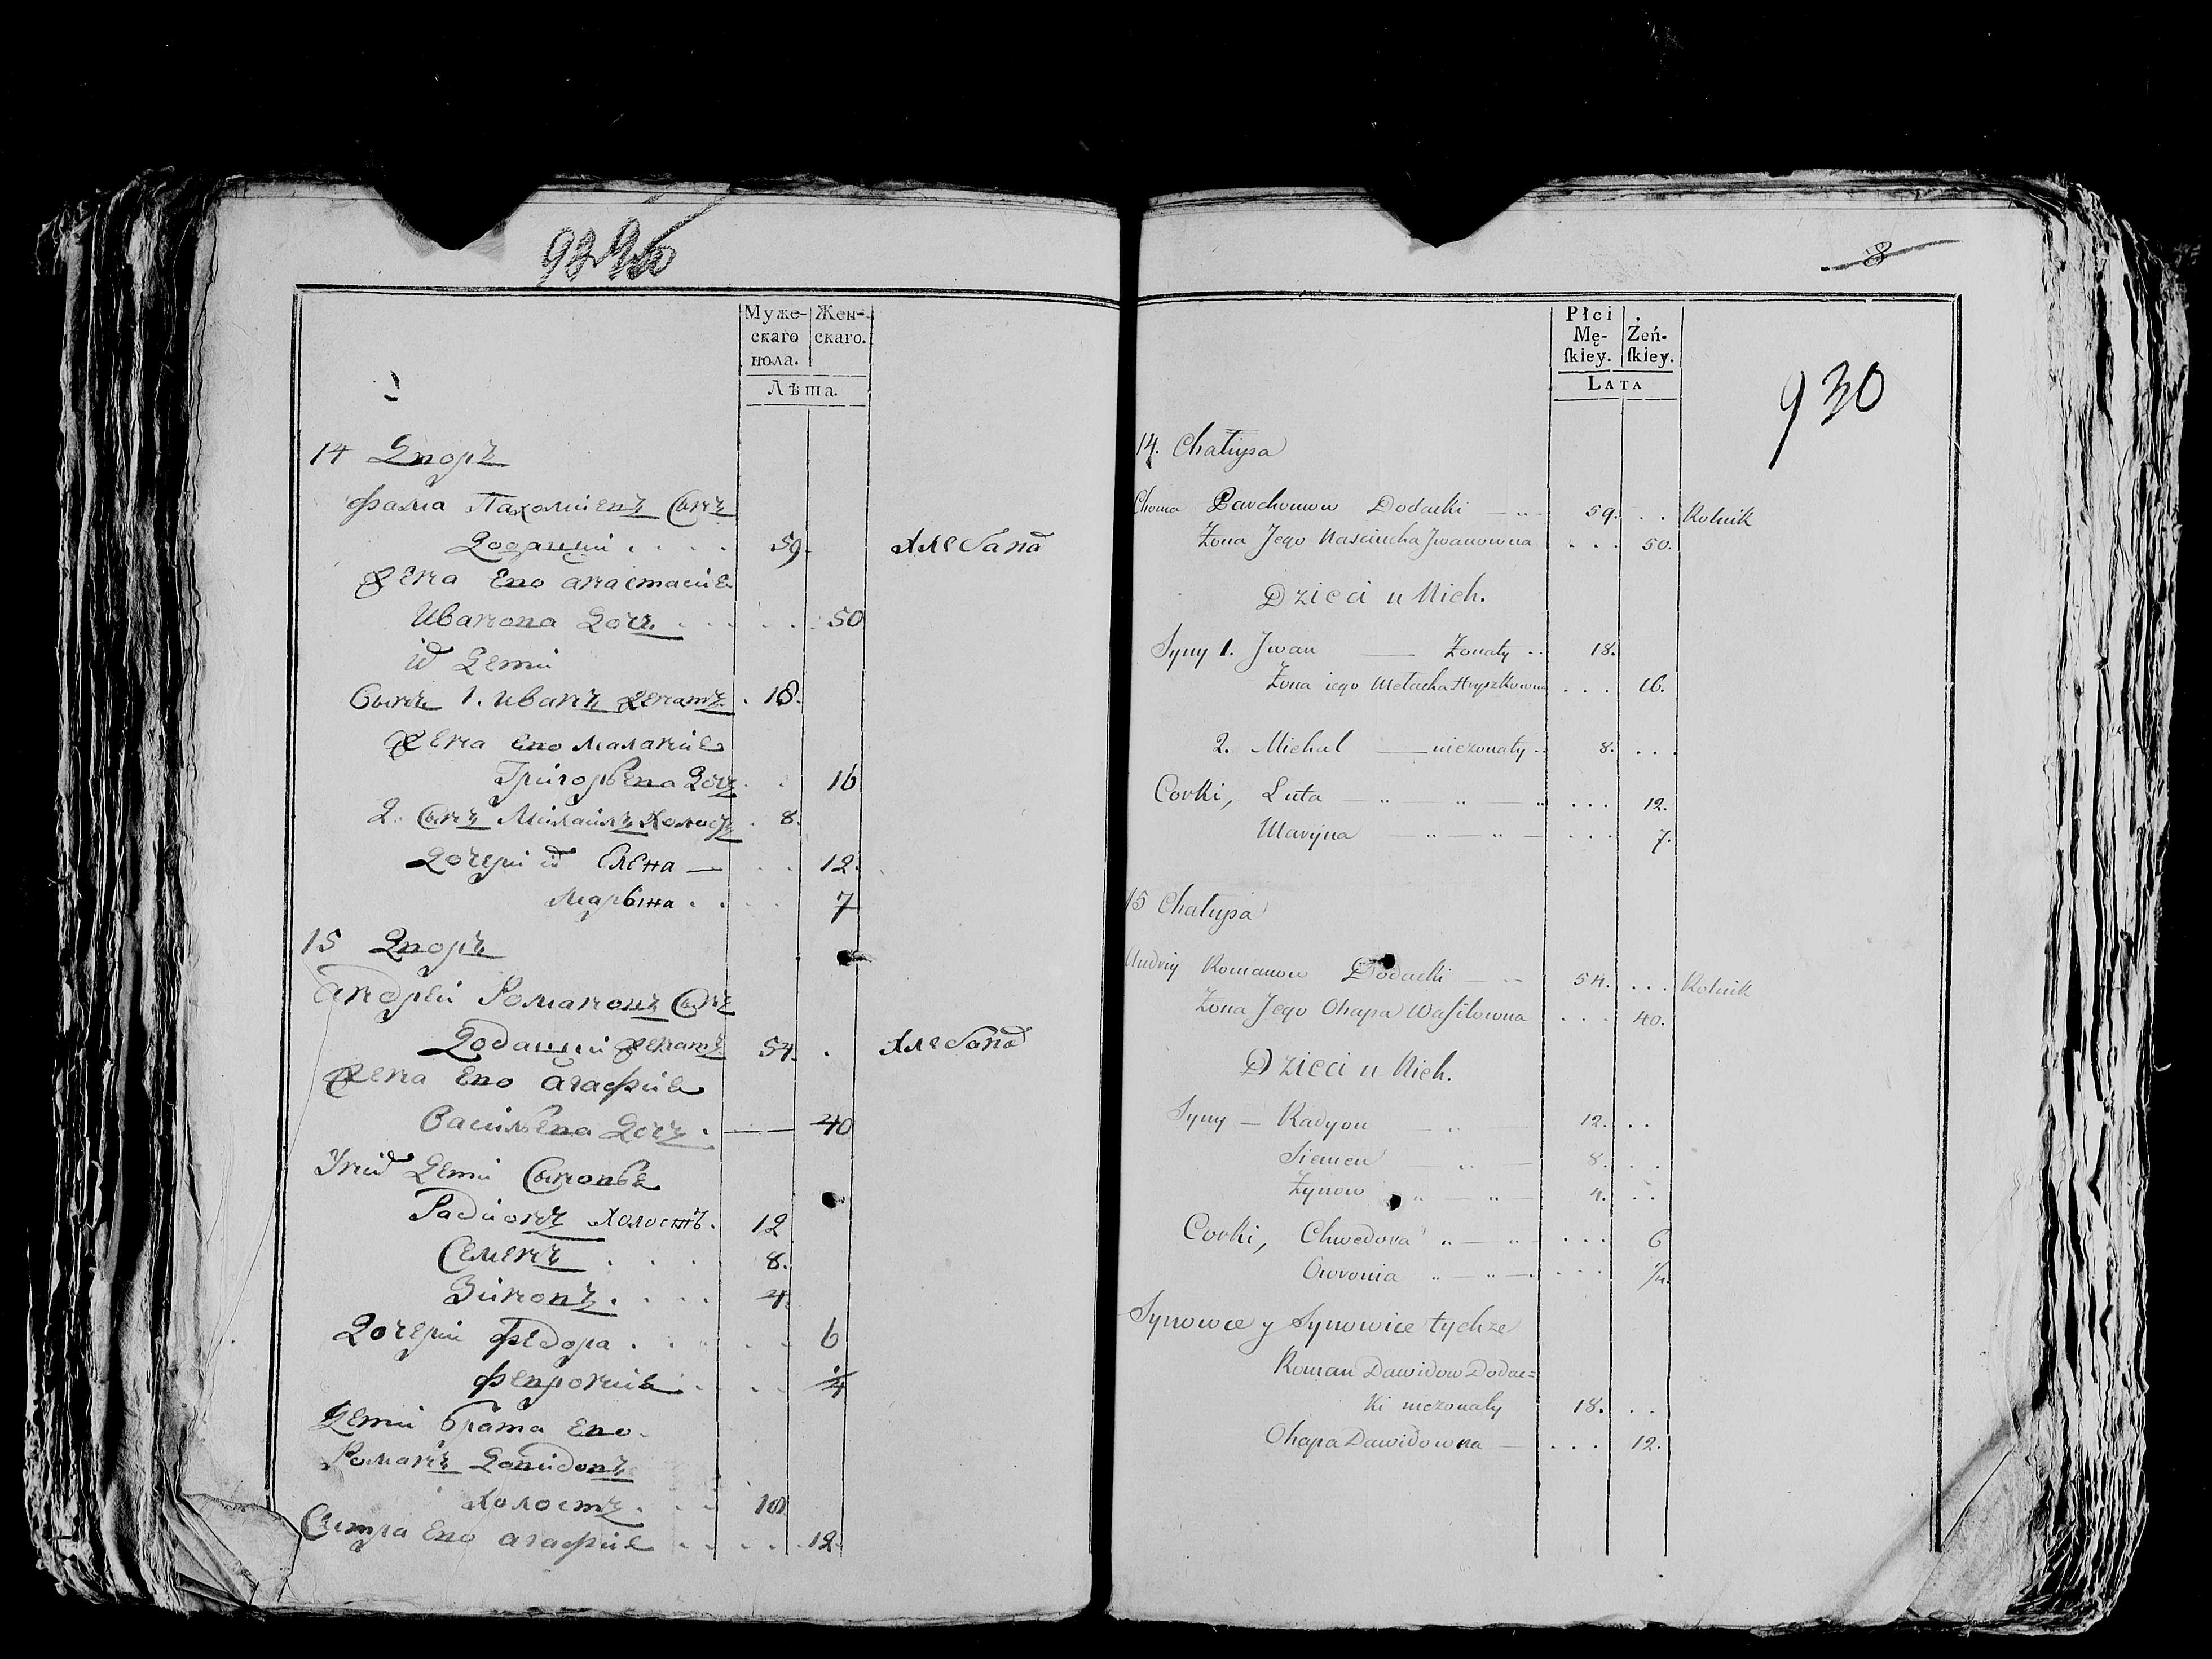 Муже-
скаго
пола.
Жен-
скаго.
Лѣта.
14 Дворъ
Фама Пахоміевъ Сынъ
Додацкій . . . . 59. Хлебопа
Жена Его Анастасия
Ивановна Дочь . . . . . 50
их Дети
Сынъ 1. Иванъ женатъ . 18.
Жена Его Маланія
Григорьевна Дочь . . 16
2. Сынъ Михаилъ Холостъ . 8.
Дочери их Елена — . . 12.
Марына . . . 7
15 Дворъ
Андрей Романовъ Сынъ
Додацкій женатъ 54. . Хлебопа
Жена Его Агафія
Васильевна Дочь . — — 40
У них Дети Сыновья
Радионъ Холостъ. 12
Семенъ . . . . 8.
Зіновъ . . . . 4.
Дочери Федора . . . . . 6
Февронія . . . 1/4
Дети брата Его
Романъ Давидовъ
Холостъ . . . 18
Сестра Его Агафія . . . . . 12.
8
930
Płci
Mę-
ſkiey.
Żeń-
ſkiey.
LATA
14. Chałupa
Choma Parchomow Dodacki — „ — 59. . . Rolnik
Żona Jego Nasciucha Jwanowna . . . 50.
Dzieci u Nich.
Syny 1. Jwan — Żonaty . . 18.
Żona iego Melacha Hryszkowna . . . 16.
2. Michal — nieżonaty . . 8. . . .
Corki, Luta — „ — „ — „ . . . 12.
Maryna — „ — „ — . . . 7.
15 Chałupa
Andriy Romanow Dodacki — „ — 54. . . . Rolnik
Żona Jego Ohapa Waſilowna . . . 40.
Dzieci u Nich.
Syny — Radyon — „ — 12. . .
Siemen — „ — 8. . .
Zynow „ — „ — 4. . .
Corki, Chwedora „ — „ . . . 6
Owronia „ — „ — . . . 1/4.
Synowce y Synowice tychże
Roman Dawidow Dodac=
ki nieżonaty 18. . .
Ohapa Dawidowna — . . . 12.